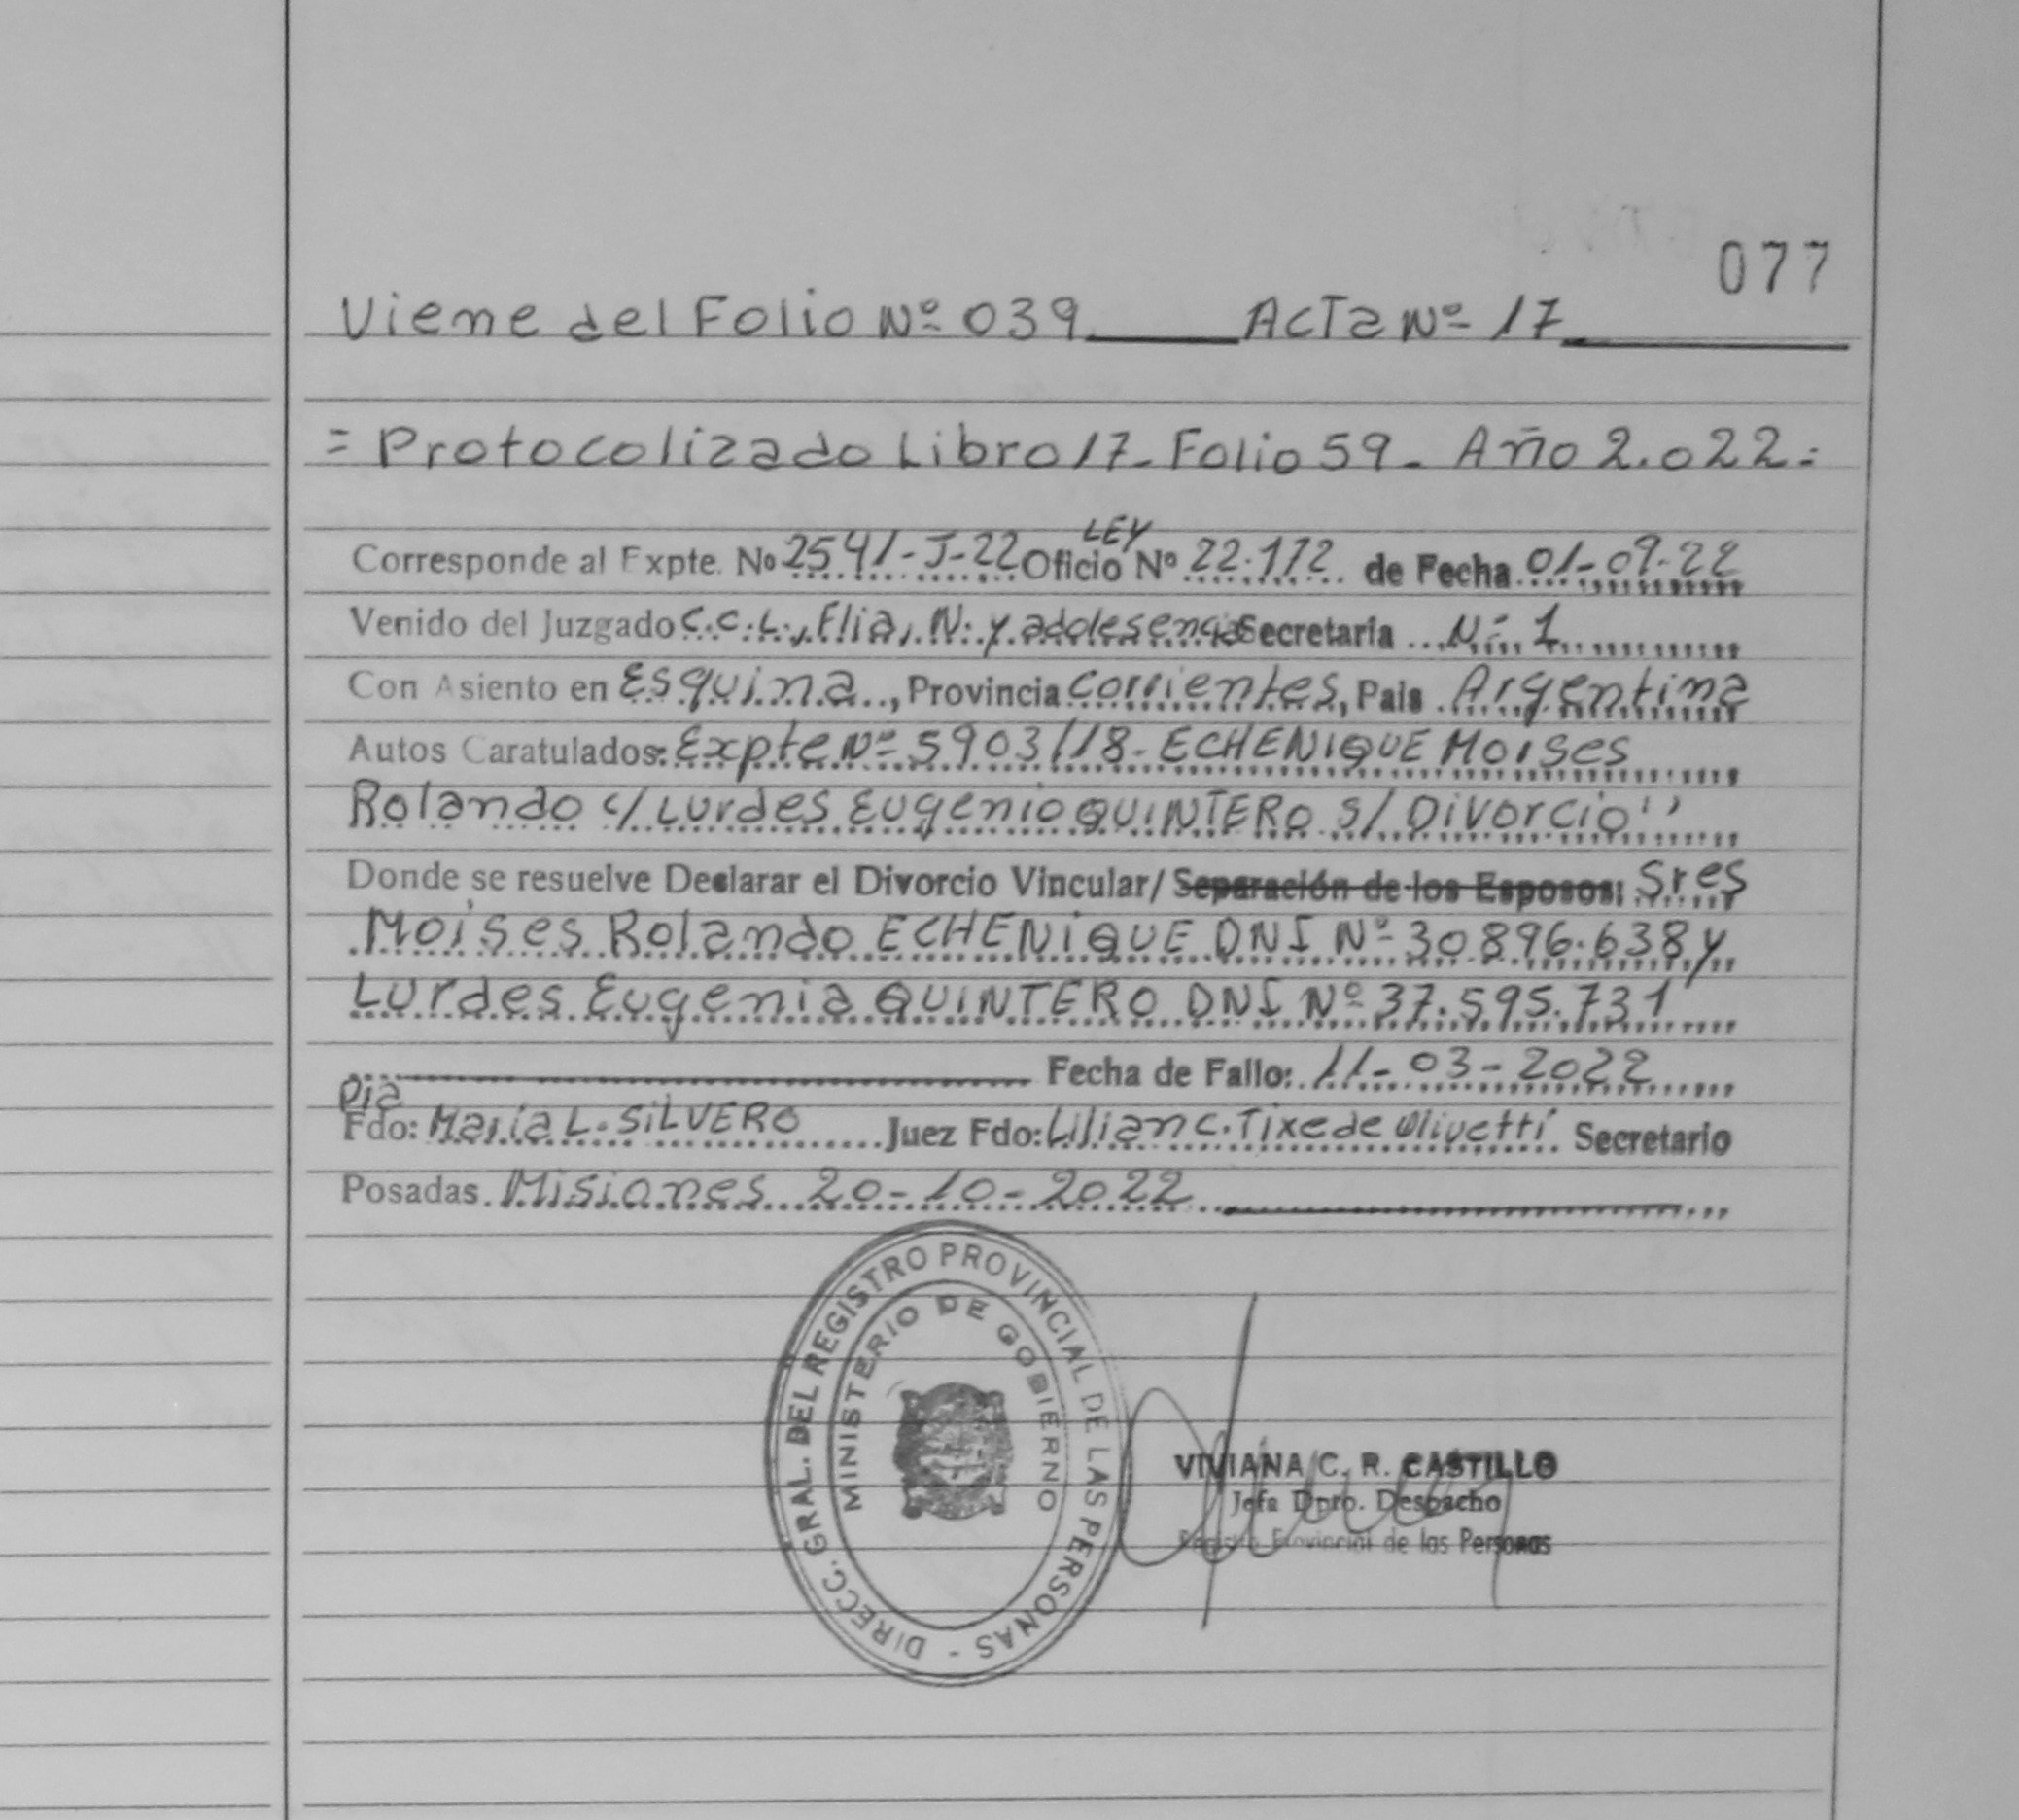 077
Viene del Folio Nº 039 ActA Nº 17
= Protocolizado Libro 17- Folio 59- Año 2.022=
LEY
Corresponde al Expte. Nº 2541-J-22 Oficio Nº 22.172 de Fecha 01-09-22
Venido del Juzgado C.C.L., Flia, N. y adolesencia Secretaria Nº 1
Con Asiento en Esquina, Provincia Corrientes, Pais Argentina
Autos Caratulados: Expte Nº 5903/18- ECHENIQUE Moises
Rolando c/ Lurdes Eugenio QUINTERO s/ Divorcio"
Donde se resuelve Declarar el Divorcio Vincular/ Separación de los Esposos: Sres
Moises Rolando ECHENIQUE DNI Nº 30.896.638 y
Lurdes Eugenia QUINTERO DNI Nº 37.595.731
Fecha de Fallo: 11-03-2022
Dra
Fdo: Maria L. SILVERO Juez Fdo: Lilian C. Tixe de Olivetti Secretario
Posadas Misiones 20-10-2022
DIRECC. GRAL. DEL REGISTRO PROVINCIAL DE LAS PERSONAS -
MINISTERIO DE GOBIERNO
VIVIANA C. R. CASTILLO
Jefa Dpto. Despacho
Registro Provincial de las Personas